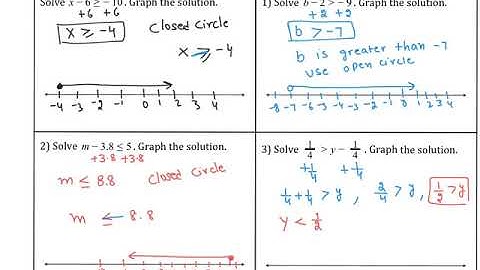 Solve x − 6 ≥ −10. Graph the solution.
+6 +6
x ≥ -4
Closed Circle
x ≥ -4
-4 -3 -2 -1 0 1 2 3 4
1) Solve b − 2 > −9. Graph the solution.
+2 +2
b > -7
b is greater than -7
use open circle
-8 -7 -6 -5 -4 -3 -2 -1 0 1 2 3 4
2) Solve m − 3.8 ≤ 5. Graph the solution.
+3.8 +3.8
m ≤ 8.8
Closed Circle
m ≤ 8.8
3) Solve 1/4 > y − 1/4. Graph the solution.
+1/4 +1/4
1/4 + 1/4 > y , 2/4 > y , 1/2 > y
y < 1/2